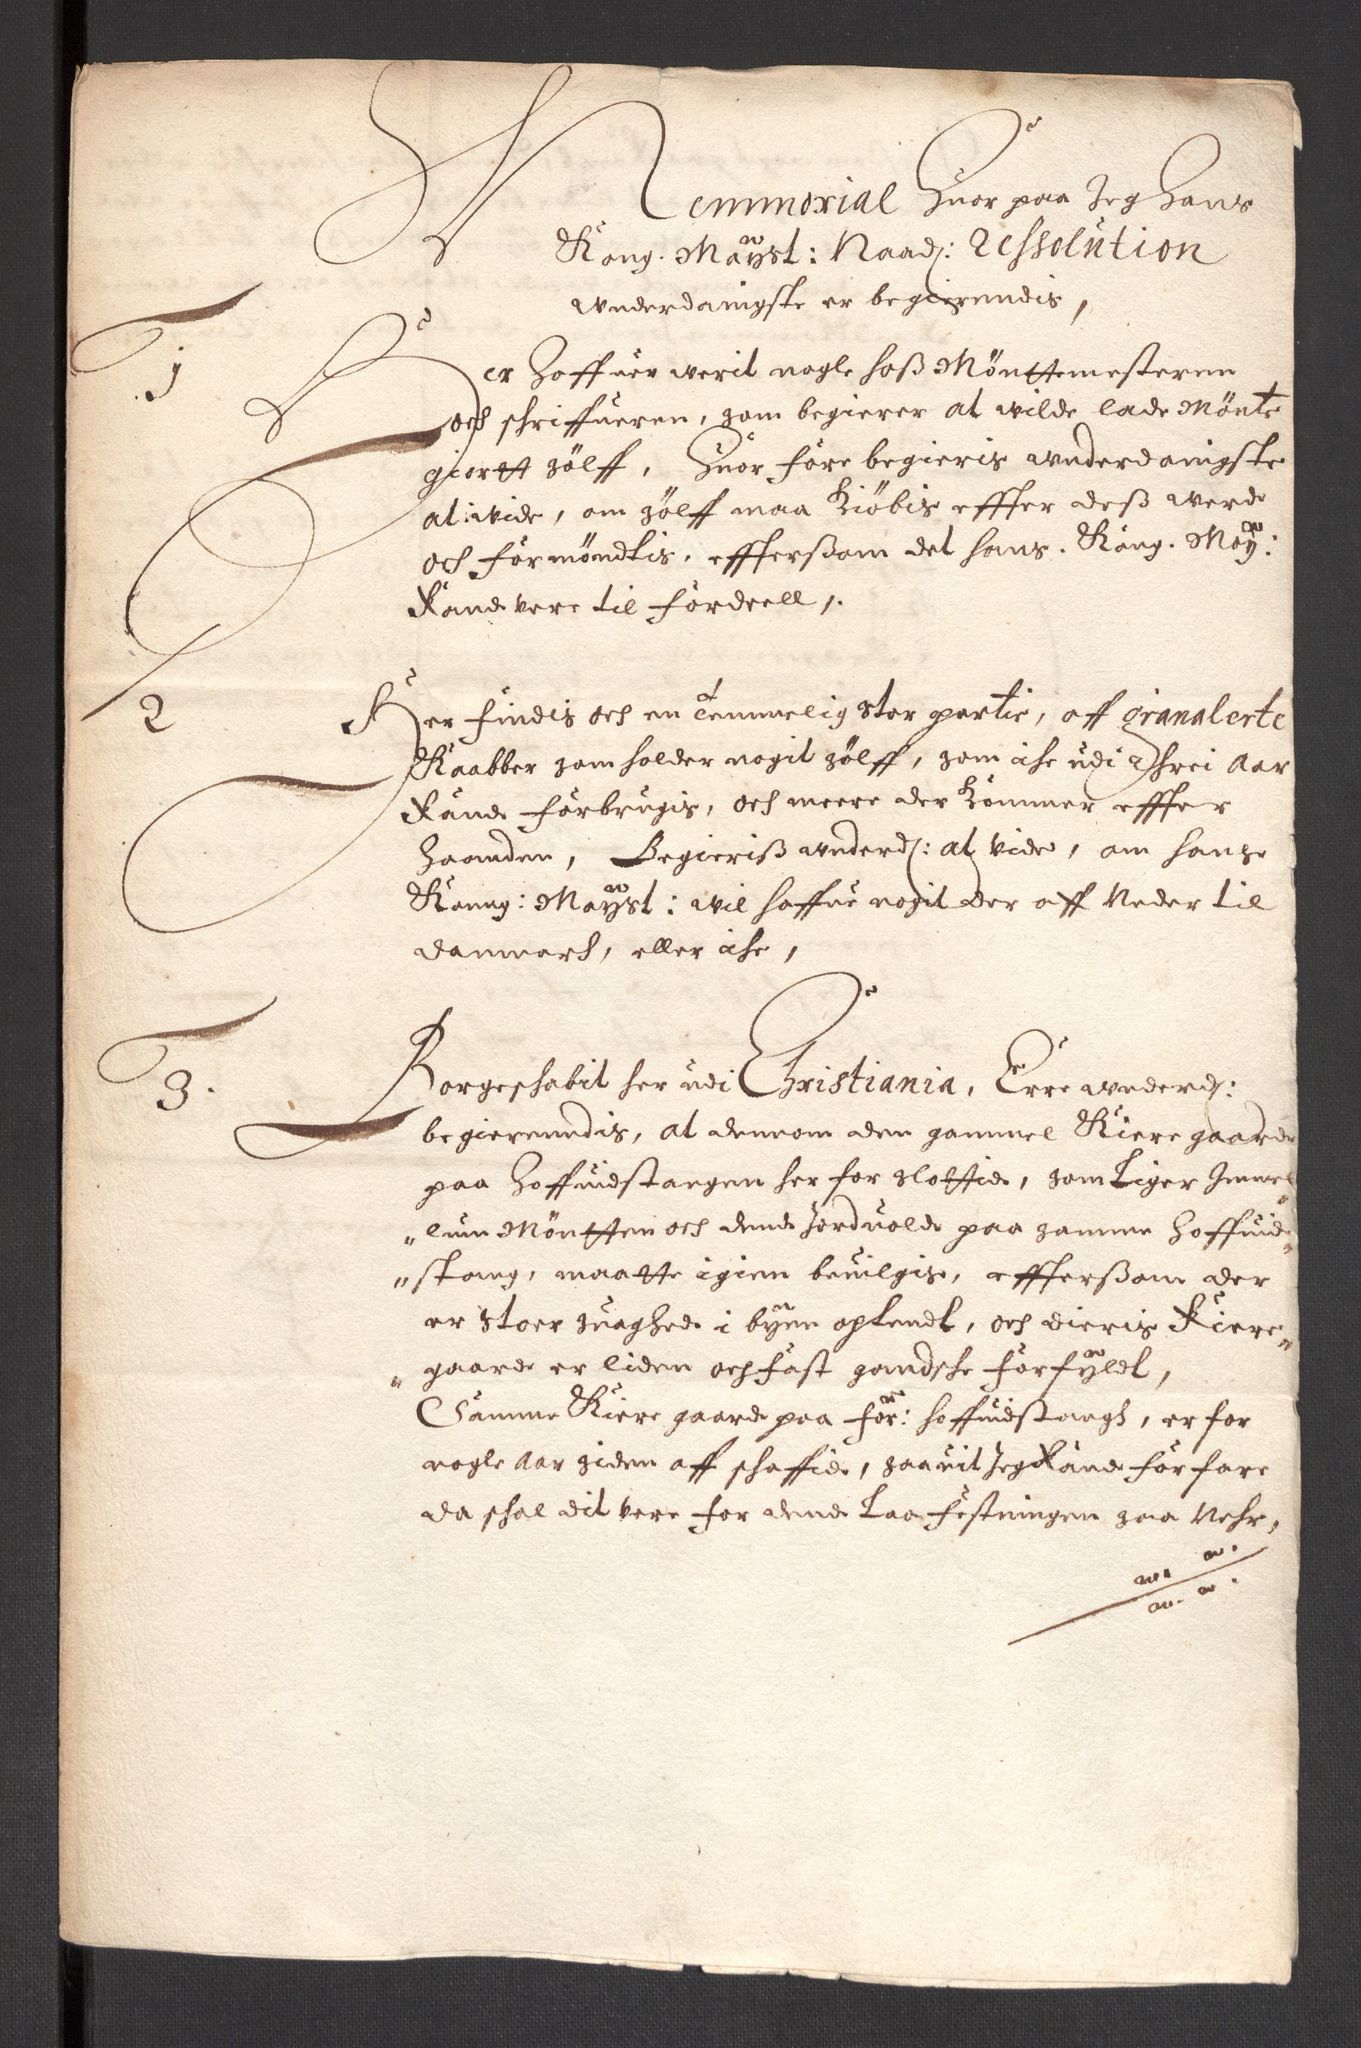 Memmorial Huor paa Jeg Hans
Kong. Maÿst: Naad: Ressolution
wnderdanigste er begierendis,
1
Her Haffuer werit nogle hoß Mönttemesteren
och schriffueren, som begierer at wilde lade Mönte
giortt sölff, Huor före begieris wnderdanigste
at vide, om sölff maa Kiöbis effter deß werde
och formöndtis, effterßom det hans. Kong. Maÿ:
Kande vere til fordeell,.
2
Her findis och en temmelig stor partie, aff granalerte
Kaabber som holder nogit sölff, som iche udi threi Aar
Kande forbrugis, och meere der Kommer effter
Haanden, Begieriß wnderd: at vide, om hans
Konng: Maÿst: wil haffue nogit der aff Neder til
Danmarch, eller iche,
3.
Borgeschabit her udi Christiania, Erre wnderd:
begierenndis, at dennom den gammel Kiere gaarde
paa Hoffuidstangen her for slottid, som Liger Imel
"lum Möntten och dend Jordvold paa samme Hoffuid"
"stang, maatte igien beuilgis, effterßom der
er stoer suaghed i bÿen optendt, och dieris Kiere"
"gaarde er liden och fast gandsche forfÿldt,
Samme Kiere gaard paa for: hoffuidstangh, er for
nogle Aar siden aff schaffid, saauit Jeg Kande forfare
da schal dit vere for dend Laa festningen saa Nehr,